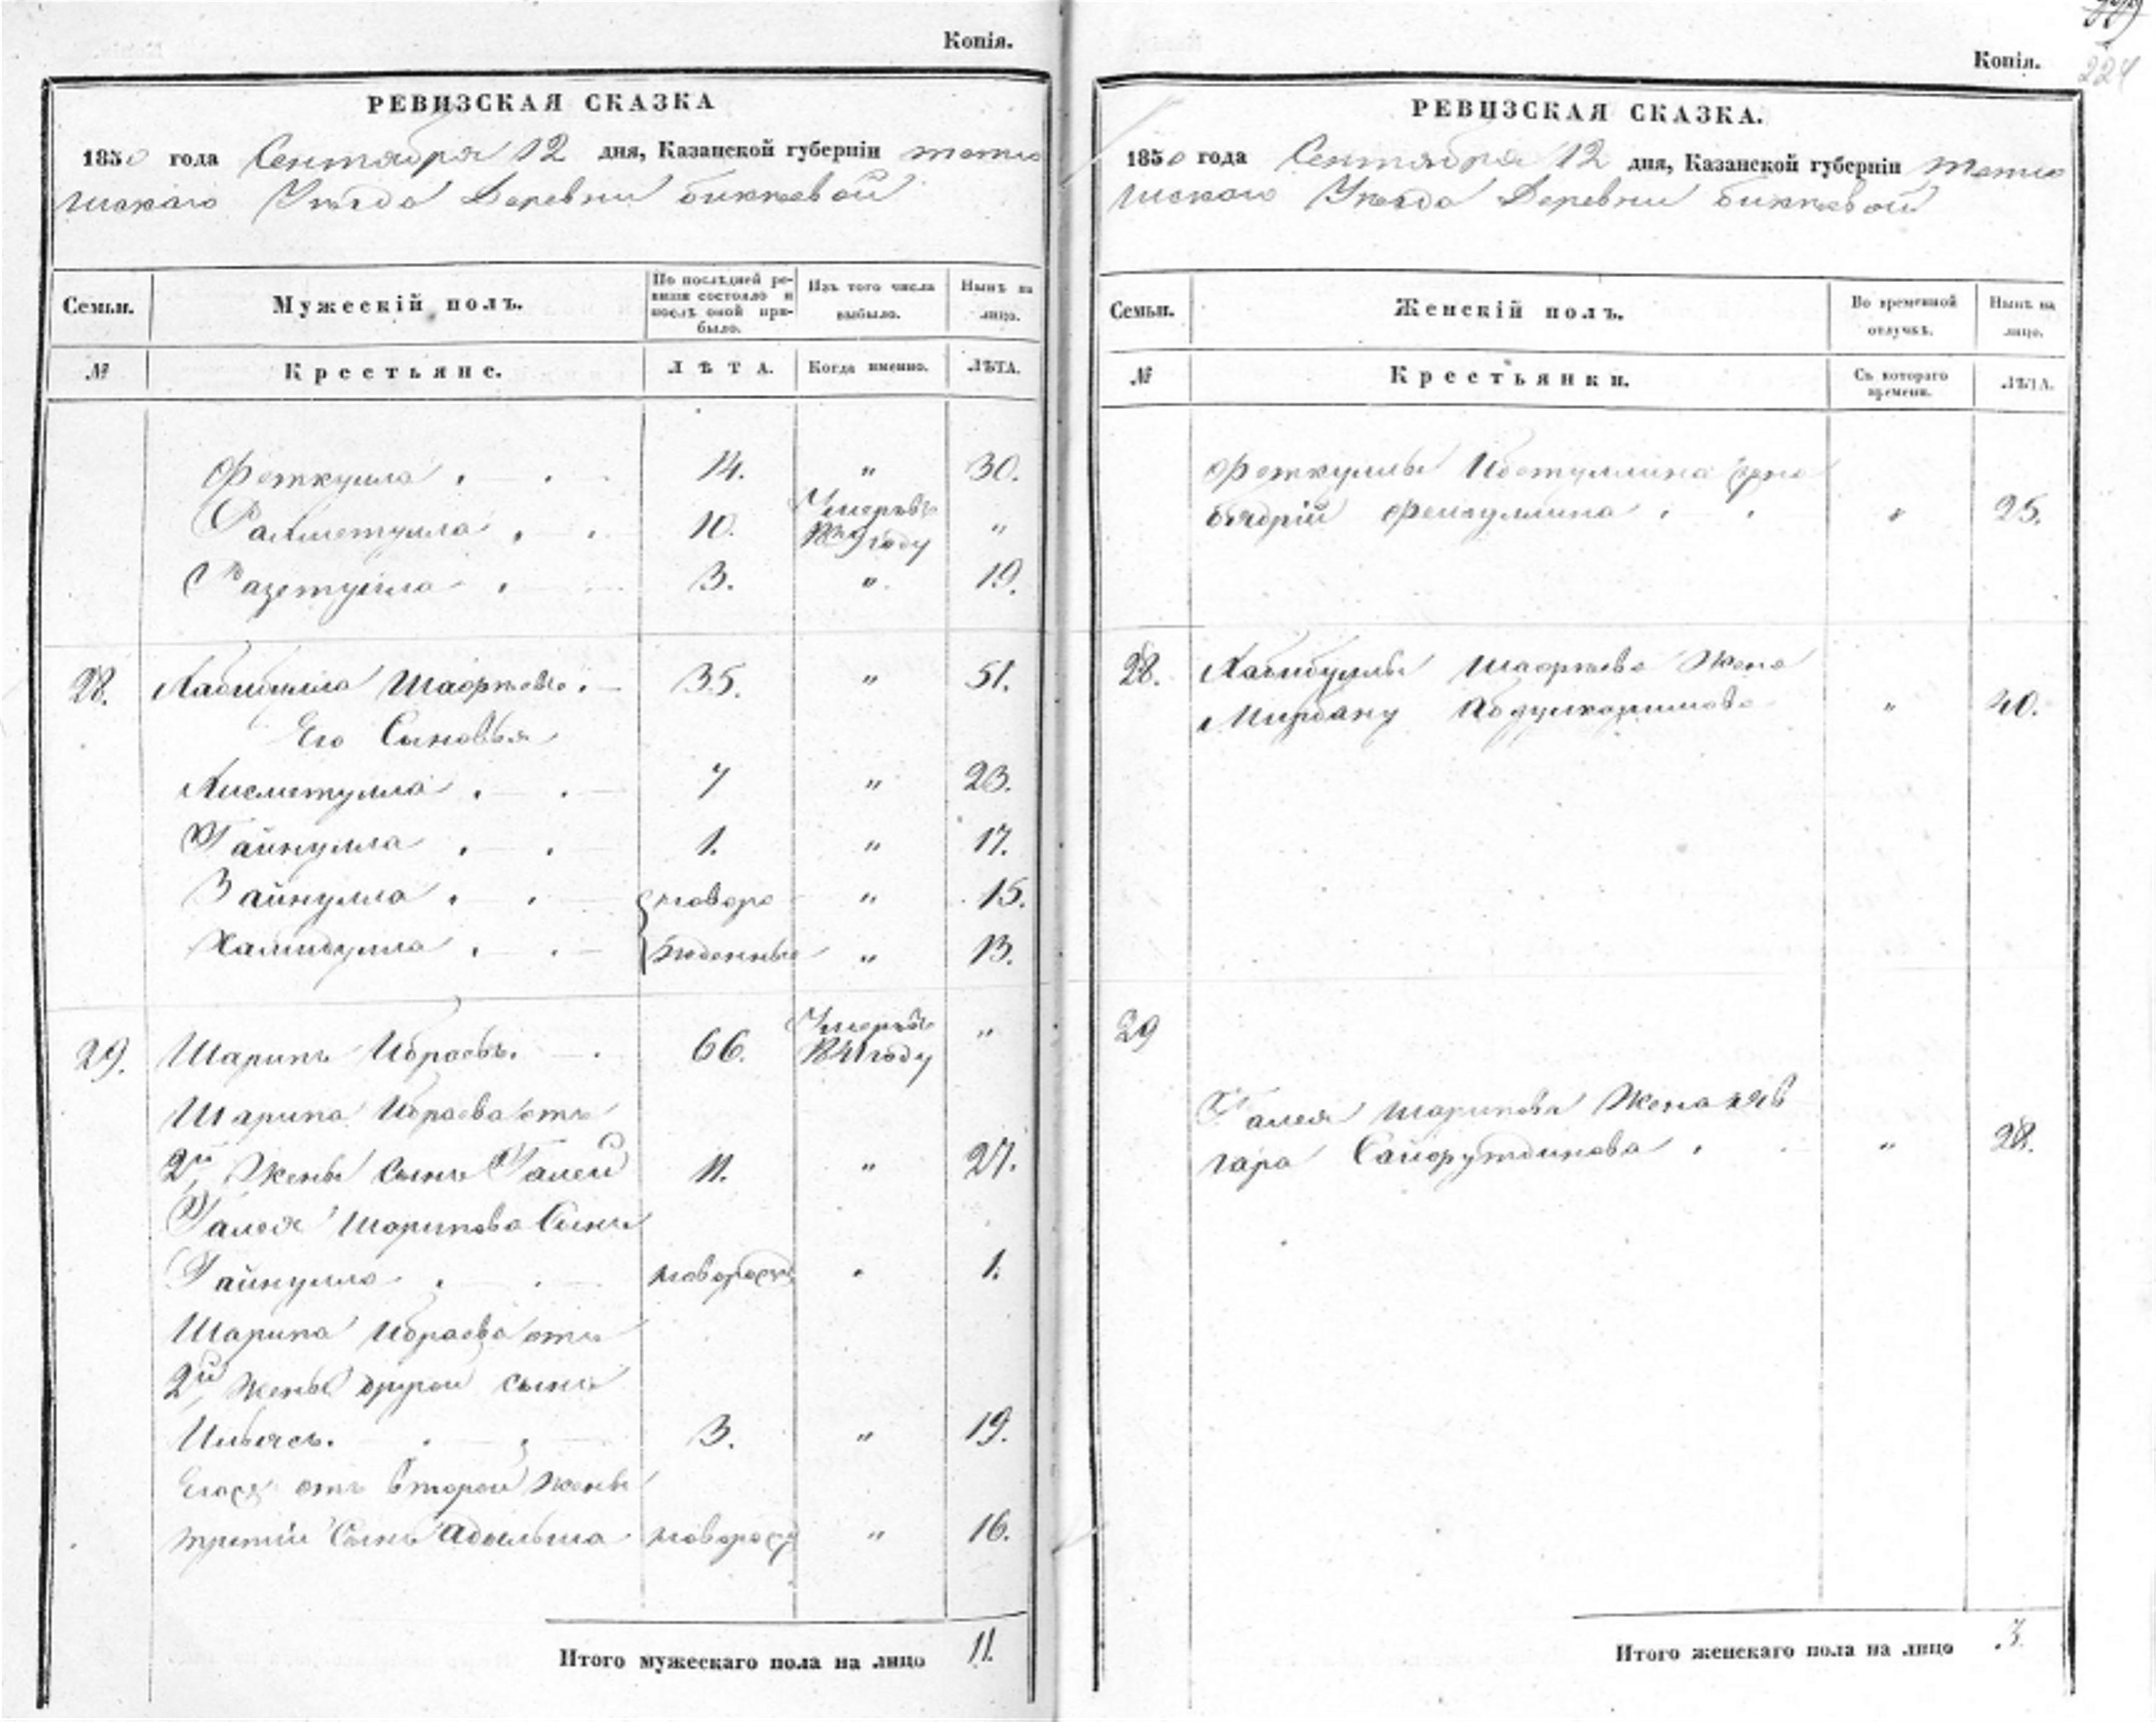 Копія.
РЕВИЗСКАЯ СКАЗКА
1850 года Сентября 12 дня, Казанской губерніи тетю
шскаго Уѣзда Деревни биккѣевой
Семьи.
Мужескій полъ.
По послѣдней ре-
визіи состояло и
послѣ оной при-
было.
Изъ того числа
выбыло.
Нынѣ на
лицо.
№
Крестьяне.
ЛѢТА.
Когда именно.
ЛѢТА.
Феткулла 14. " 30.
Рахметулла 10. Умеръ въ году "
Разетулла 3. " 19.
28. Хабибулла Шафѣевъ. 35. " 51.
Его Сыновья
Хисметулла 7 " 23.
Гайнулла 1. " 17.
Зайнулла новоро " 15.
Халидулла жденные " 13.
29. Шарипъ Ибраевъ. 66. Умеръ въ 1841 году "
Шарипа Ибраева отъ
2й Жены сынъ Галей 11. " 27.
Галея Шарипова Сынъ
Гайнулла новорож " 1.
Шарипа Ибраева отъ
2й Жены другой сынъ
Ильясъ. 3. " 19.
Его отъ второй Жены
третій Сынъ новорож " 16.
Итого мужескаго пола на лицо 11.
Копія.
224
РЕВИЗСКАЯ СКАЗКА.
1850 года Сентября 12 дня, Казанской губерніи тетю
шскаго Уѣзда Деревни биккѣевой
Семьи.
Женскій полъ.
Во временной
отлучкѣ.
Нынѣ на
лицо.
№
Крестьянки.
Съ котораго
времени.
ЛѢТА.
Феткуллы Ибетуллина жена
бядрій " 25.
28. Хабибуллы Шафѣева Жена
Абдулкаримова " 40.
29
Галея Шарипова Жена
гара Сайфутдинова " 28.
Итого женскаго пола на лицо 3